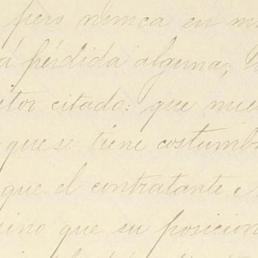 pero nunca en m
á pérdida alguna;
itor citado: que
que se tiene costumb
que el contratante
ino que su posicion